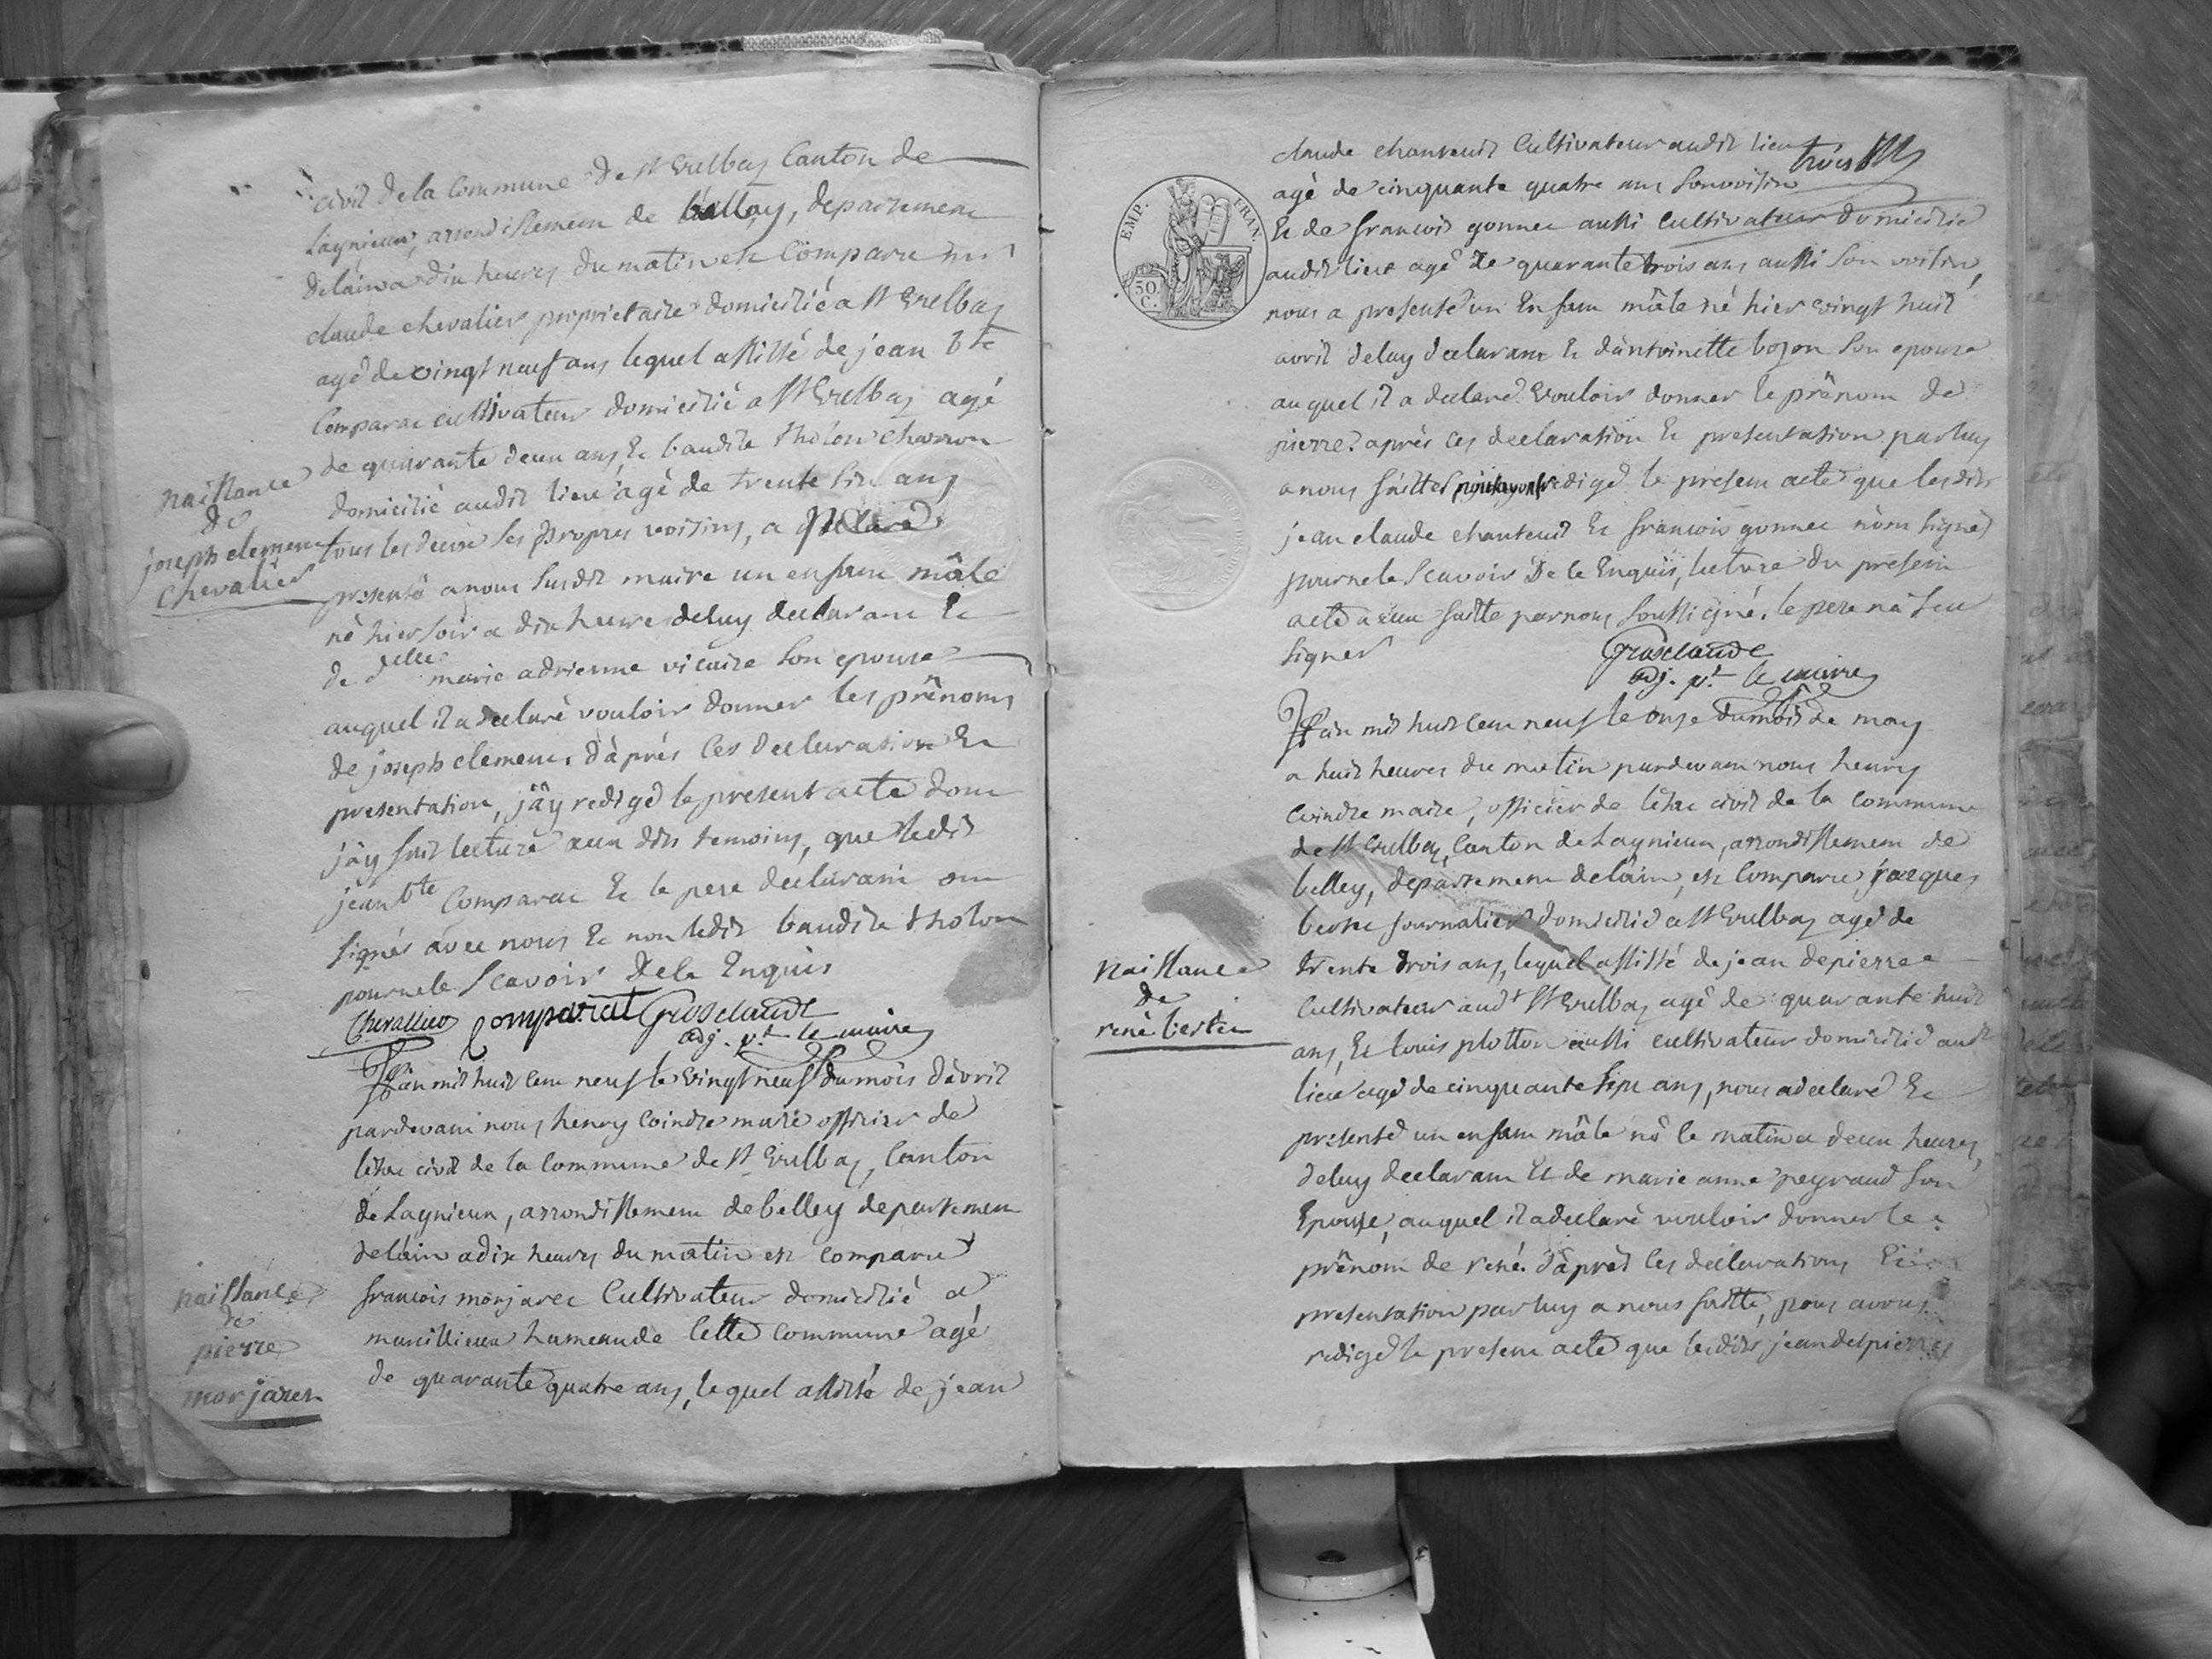 civil de la Commune de St Vulbas Canton de
Lagnieux, arrondissement de belley, departement
delain a dix heures du matin est Comparu
claude chevalier proprietaire domicilié a St Vulbas
agé de vingt neuf ans lequel assisté de jean bte
Comparat cultivateur domicilié a St Vulbas agé
de quarante deux ans, Et baudile tholon charron
domicilié audit lieu agé de trente six ans
tous les deux ses propres voisins, a declaré
presenté a nous susdit maire un enfant mâle
né hier soir a dix heures deluy declarant Et
de delle marie adrienne vicaire son epouse
auquel il a declaré vouloir donner les prênoms
de joseph clement. d'après ces declaration Et
presentation, j'ay redigé le present acte dont
j'ay fait lecture aux dits temoins, que ledit
jean bte Comparat Et le pere declarant ont
signés avec nous Et non ledit baudile tholon
pour ne le Scavoir De le Enquis
Chevallier Comparat Grosclaude
adj. pr le maire
naissance
de
joseph clement
chevalier
L'an mil huit cent neuf le vingt neuf du mois d'avril
pardevant nous henry Coindre maire officier de
l'etat civil de la Commune de St Vulbas, Canton
de Lagnieux, arrondissement de belley departement
delain a dix heures du matin est comparu
francois morjaret Cultivateur domicilié a
marcillieux hameau de Cette Commune agé
de quarante quatre ans, lequel assisté de jean
naissance
de
pierre
morjaret
claude chanteuil Cultivateur audit lieu
agé de cinquante quatre ans son voisin
Et de francois gonnet aussi Cultivateur domicilié
audit lieu agé de quarante trois ans aussi son voisin,
nous a presenté un Enfant mâle né hier vingt huit
avril deluy declarant Et d'antoinette bozon son epouse
auquel il a declaré vouloir donner le prênom de
pierre. après ces declaration Et presentation par luy
a nous faittes nous ayons redigé le present acte que lesdits
jean claude chanteuil Et francois gonnet n'ont signé
pour ne le Scavoir De le Enquis, lecture du present
acte a eux faitte par nous soussigné, le pere n'a sceu
signer
Grosclaude
adj. pr le maire
EMP. FRAN.
50 C.
L'an mil huit cent neuf le onze du mois de may
a huit heures du matin pardevant nous henry
Coindre maire, officier de l'etat civil de la commune
de St Vulbas, Canton de Lagnieux, arrondissement de
belley, departement delain, est Comparu, jacques
journalier domicilié a St Vulbas agé de
trente trois ans, lequel assisté de jean depierre
Cultivateur audt St Vulbas agé de quarante huit
ans, Et louis plotton aussi cultivateur domicilié audt
lieu agé de cinquante ans, nous a declaré Et
presenté un enfant mâle né le matin a deux heures,
deluy declarant Et de marie anne peyraud son
Epouse, auquel il a declaré vouloir donner le
prênom de rené. d'après ces declarations Et
presentation par luy a nous faitte, nous avons
redigé le present acte que lesdits jean depierre
naissance
de
rené